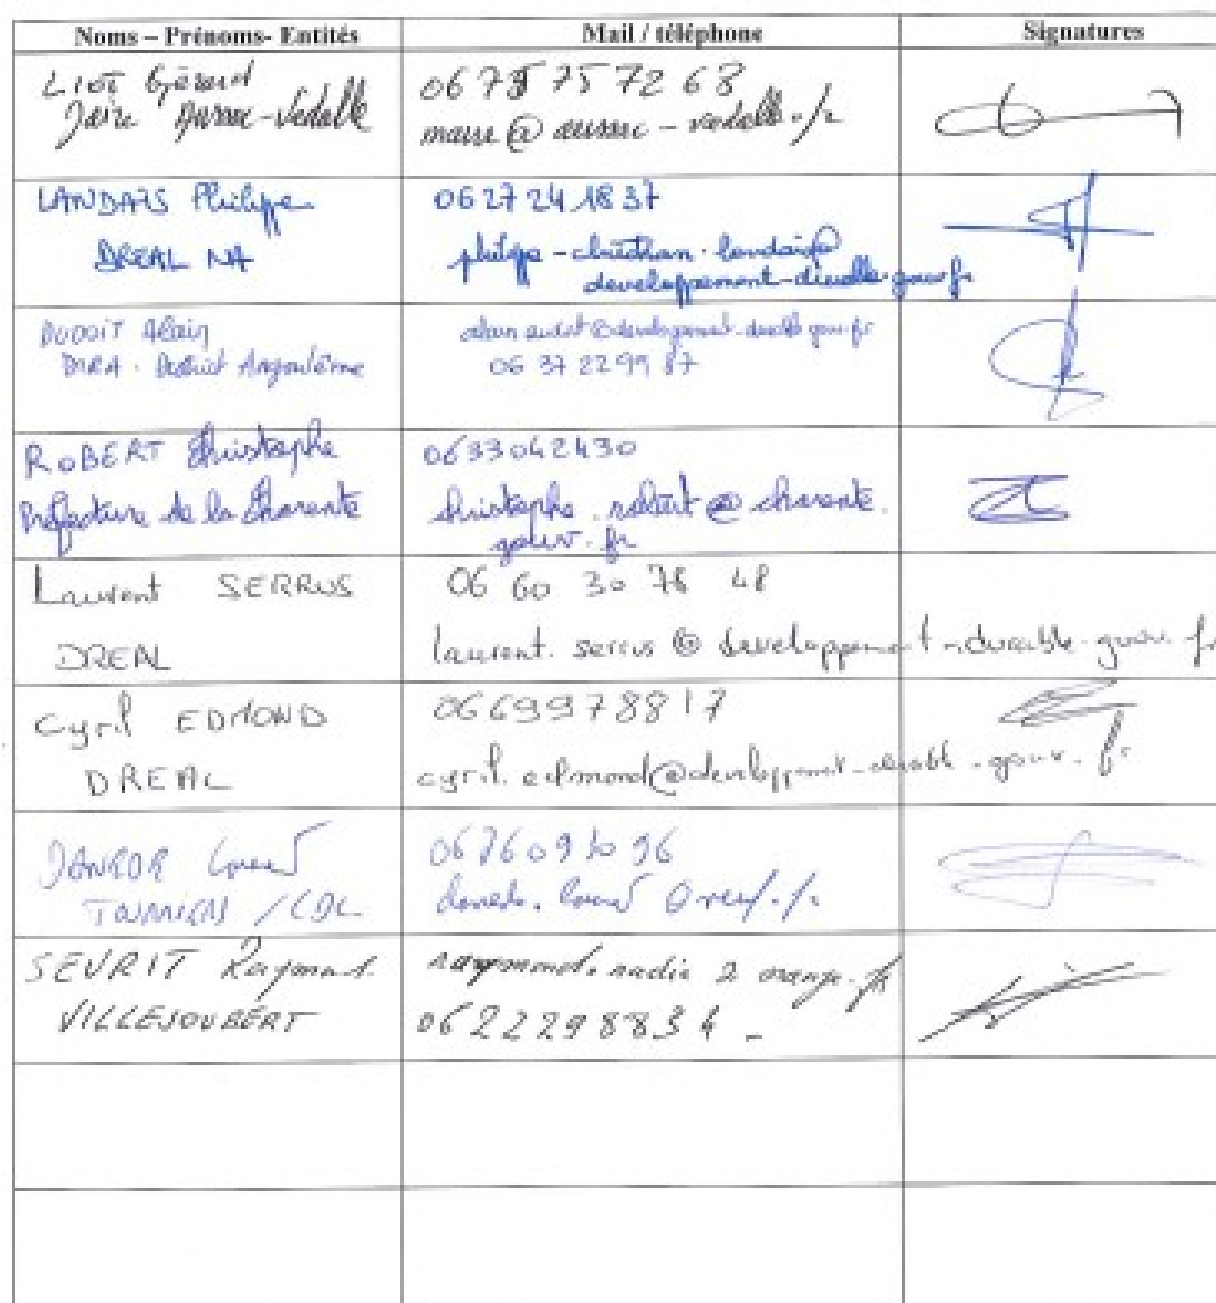 Noms – Prénoms- Entités Mail / téléphone Signatures
LIOT Gérard
Maire Aussac-Vadalle
06 75 75 72 68
maire @ aussac - vadalle . fr
LANDAIS Philippe
DREAL NA
06 27 24 18 37
philippe - christian . landais@
developpement-durable.gouv.fr
DUDOIT Alain
DIRA . District Angoulême
06 37 22 99 87
ROBERT Christophe
Préfecture de la Charente
0633042430
christophe . robert @ charente.
gouv. fr
Laurent SERRUS
DREAL
06 60 30 78 48
laurent. serrus @ developpement-durable.gouv. fr
Cyril EDMOND
DREAL
0669978817
cyril. edmond@developpement-durable.gouv. fr
SEVRIT Raymond
VILLEJOUBERT
0622298834